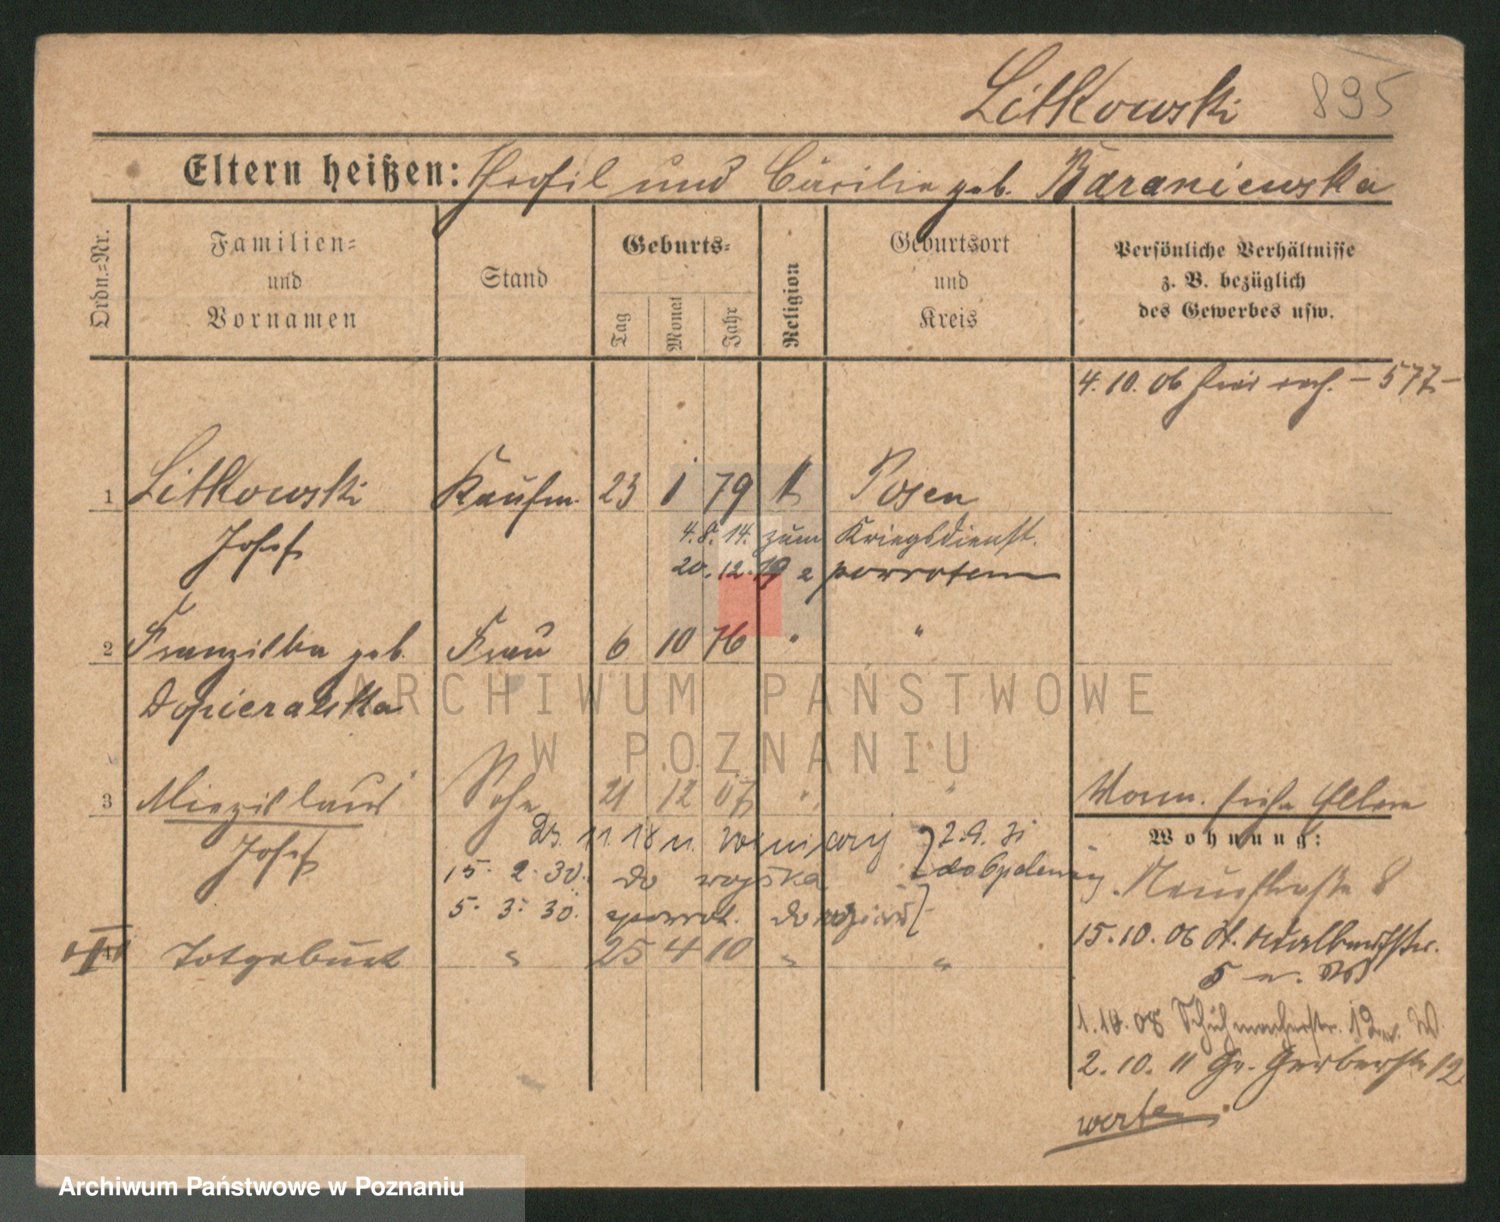 Litkowski 895
Eltern heißen: Theofil und Cäcilie geb. Baraniewska
Ordn.=Nr.
Familien=
und
Vornamen
Stand
Geburts=
Tag
Monat
Jahr
Religion
Geburtsort
und
Kreis
Persönliche Verhältnisse
z. B. bezüglich
des Gewerbes usw.
4. 10. 06 577
1 Litkowski Kaufm. 23 1 79 k Posen
Josef
4.8.14. zum Kriegsdienst.
20.12.19 z powrotem
2 Franziska geb. Frau 6 10 76 " "
Dopieralska
3 Miezislaus Sohn 21 12 07 " "
Josef
11. 18 n. Winiary
15. 2. 30. do wojska
5. 3. 30. powrot. do
4 Totgeburt " 25 4 10 " "
Wohnung:
Neuestraße 8
15. 10. 06 St. Adalbertstr.
5
1. 10. 08 Schuhmacherstr. 12 n. W.
2. 10. 11 Gr. Gerberstr 12
ARCHIWUM PAŃSTWOWE
W POZNANIU
Archiwum Państwowe w Poznaniu